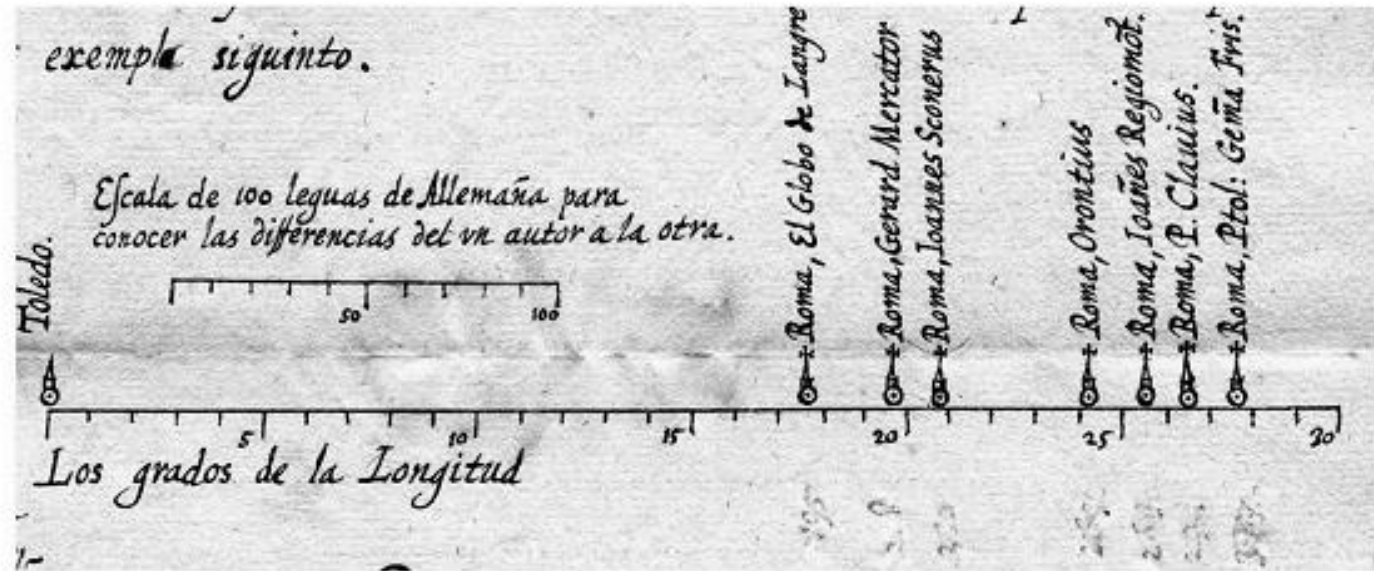 exemplo siguinto.
Escala de 100 leguas de Allemaña para
conocer las differencias del vn autor a la otra.
50 100
Toledo.
Roma, El Globo de Langre
Roma, Gerard Mercator
Roma, Ioannes Sconerus
Roma, Orontius
Roma, Ioañes Regiomõt.
Roma, P. Clauius.
Roma, Ptol: Gem̃a Fris.
5 10 15 20 25 30
Los grados de la Longitud